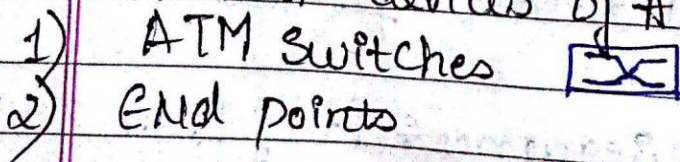 1) ATM Switches
2) ENd Points